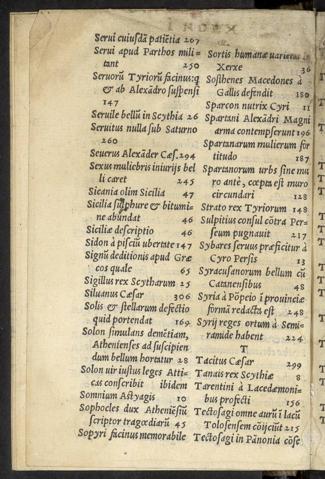 Serui cuiusdā patiētia 267
Serui apud Parthos mili=
tant 250
Seruorū Tyriorū facinus: q
& ab Alexādro suspensi
147
Seruile bellū in Scythia 26
Seruitus nulla sub Saturno
260
Seuerus Alexāder Cæs. 294
Sexus muliebris iniurijs bel
li caret 245
Sicania olim Sicilia 47
Sicilia sulphure & bitumi=
ne abundat 46
Siciliæ descriptio 46
Sidon à pisciū ubertate 147
Signū deditionis apud Græ
cos quale 65
Sigillus rex Scytharum 25
Siluanus Cæsar 306
Solis & stellarum defectio
quid portendat 169
Solon simulans demētiam,
Athenienses ad suscipien
dum bellum hortatur 28
Solon uir iustus leges Atti=
cas conscribit ibidem
Somnium Astyagis 10
Sophocles dux Atheniēsiū
scriptor tragœdiarū 45
Sopyri facinus memorabile
Sortis humanæ uarietas in
Xerxe 36
Sosthenes Macedones à
Gallis defendit 180
Sparcon nutrix Cyri 11
Spartani Alexādri Magni
arma contempserunt 196
Spartanarum mulierum for
titudo 187
Spartanorum urbs sine mu
ro antè, cœpta est muro
circundari 128
Strato rex Tyriorum 148
Sulpitius consul cōtra Per=
seum pugnauit 217
Sybares seruus præficitur à
Cyro Persis 13
Syracusanorum bellum cū
Catinensibus 48
Syria à Pōpeio ī prouinciæ
formā redacta est 248
Syrij reges ortum à Semi=
ramide habent 224
T
Tacitus Cæsar 299
Tanais rex Scythiæ 8
Tarentini à Lacedæmoni=
bus profecti 156
Tectosagi omne aurū ī lacū
Tolosensem cōijciūt 215
Tectosagi in Pānonia cōse